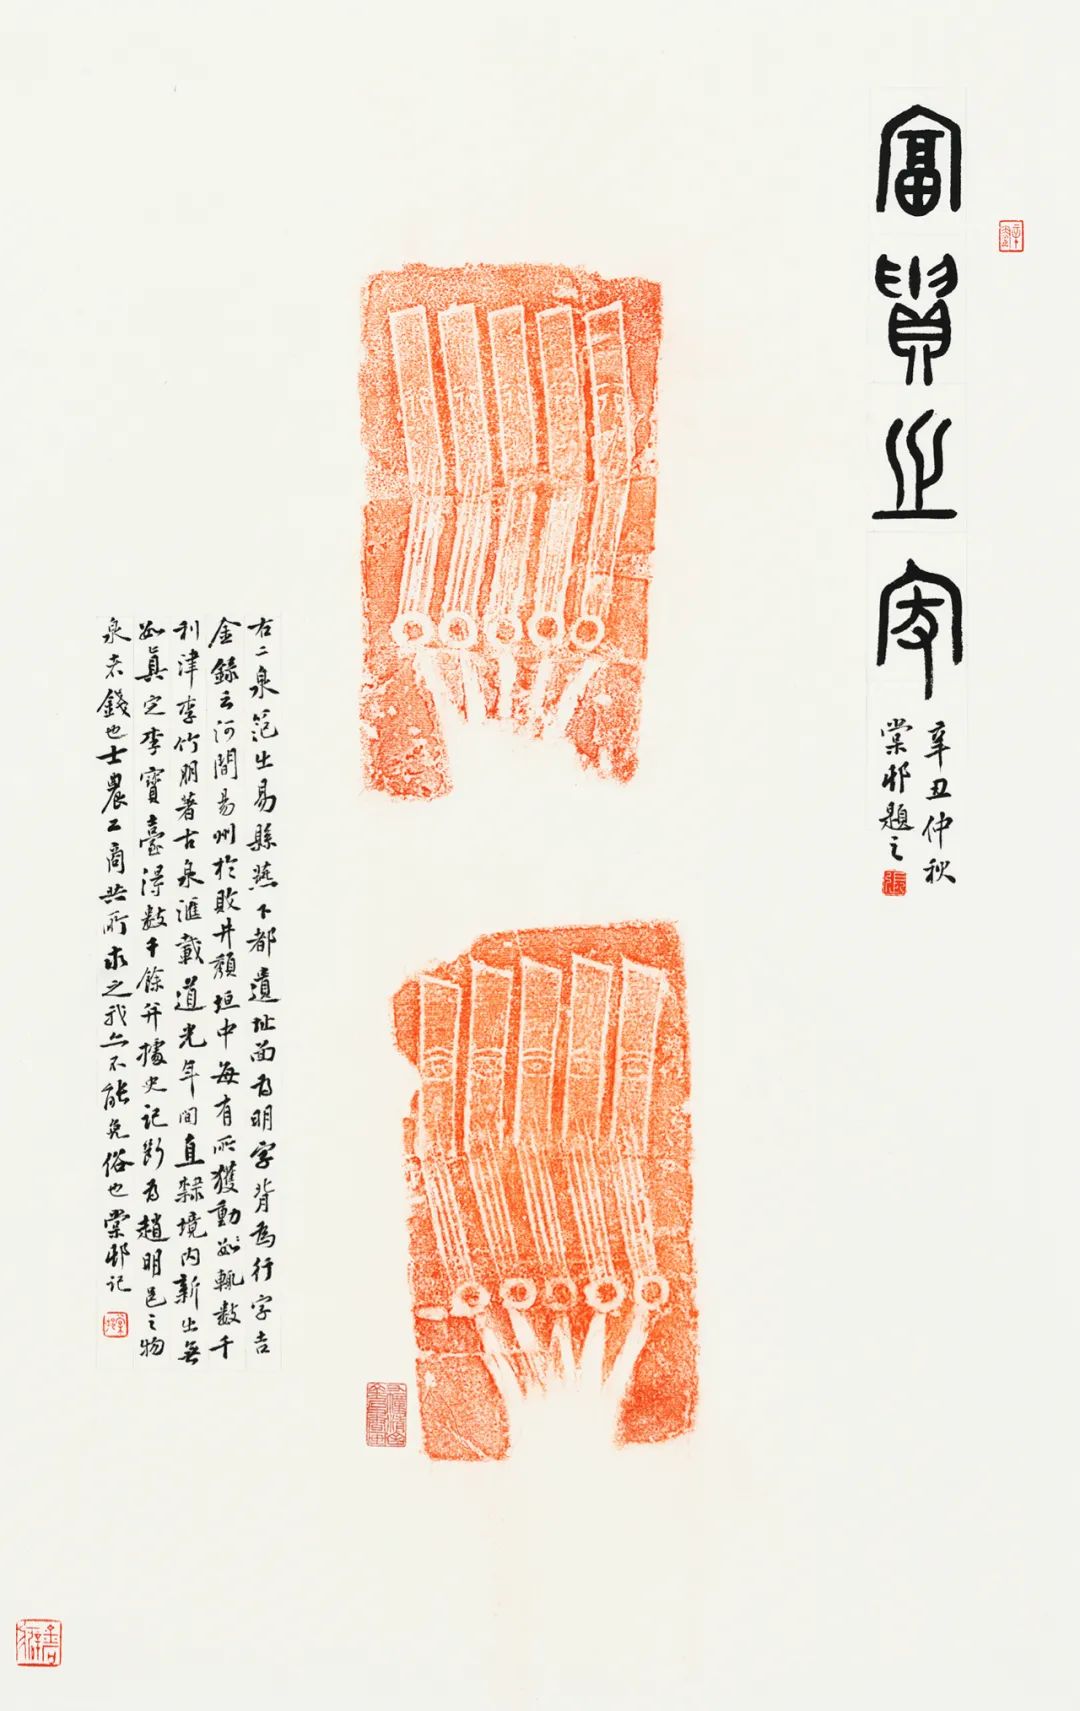 富貴之
辛丑仲秋
棠邨題之
張
辛丑
右二泉笵出易縣燕下都遺址面為明字背為行字吉
金錄云河間易州於敗井頹垣中每有所獲動輒數千
利津李竹朋著古泉滙載道光年間直隸境內新出無
如真定李寶臺得數千餘并據史記斷為趙明邑之物
泉者錢也士農工商共所求之我亦不能免俗也棠邨記